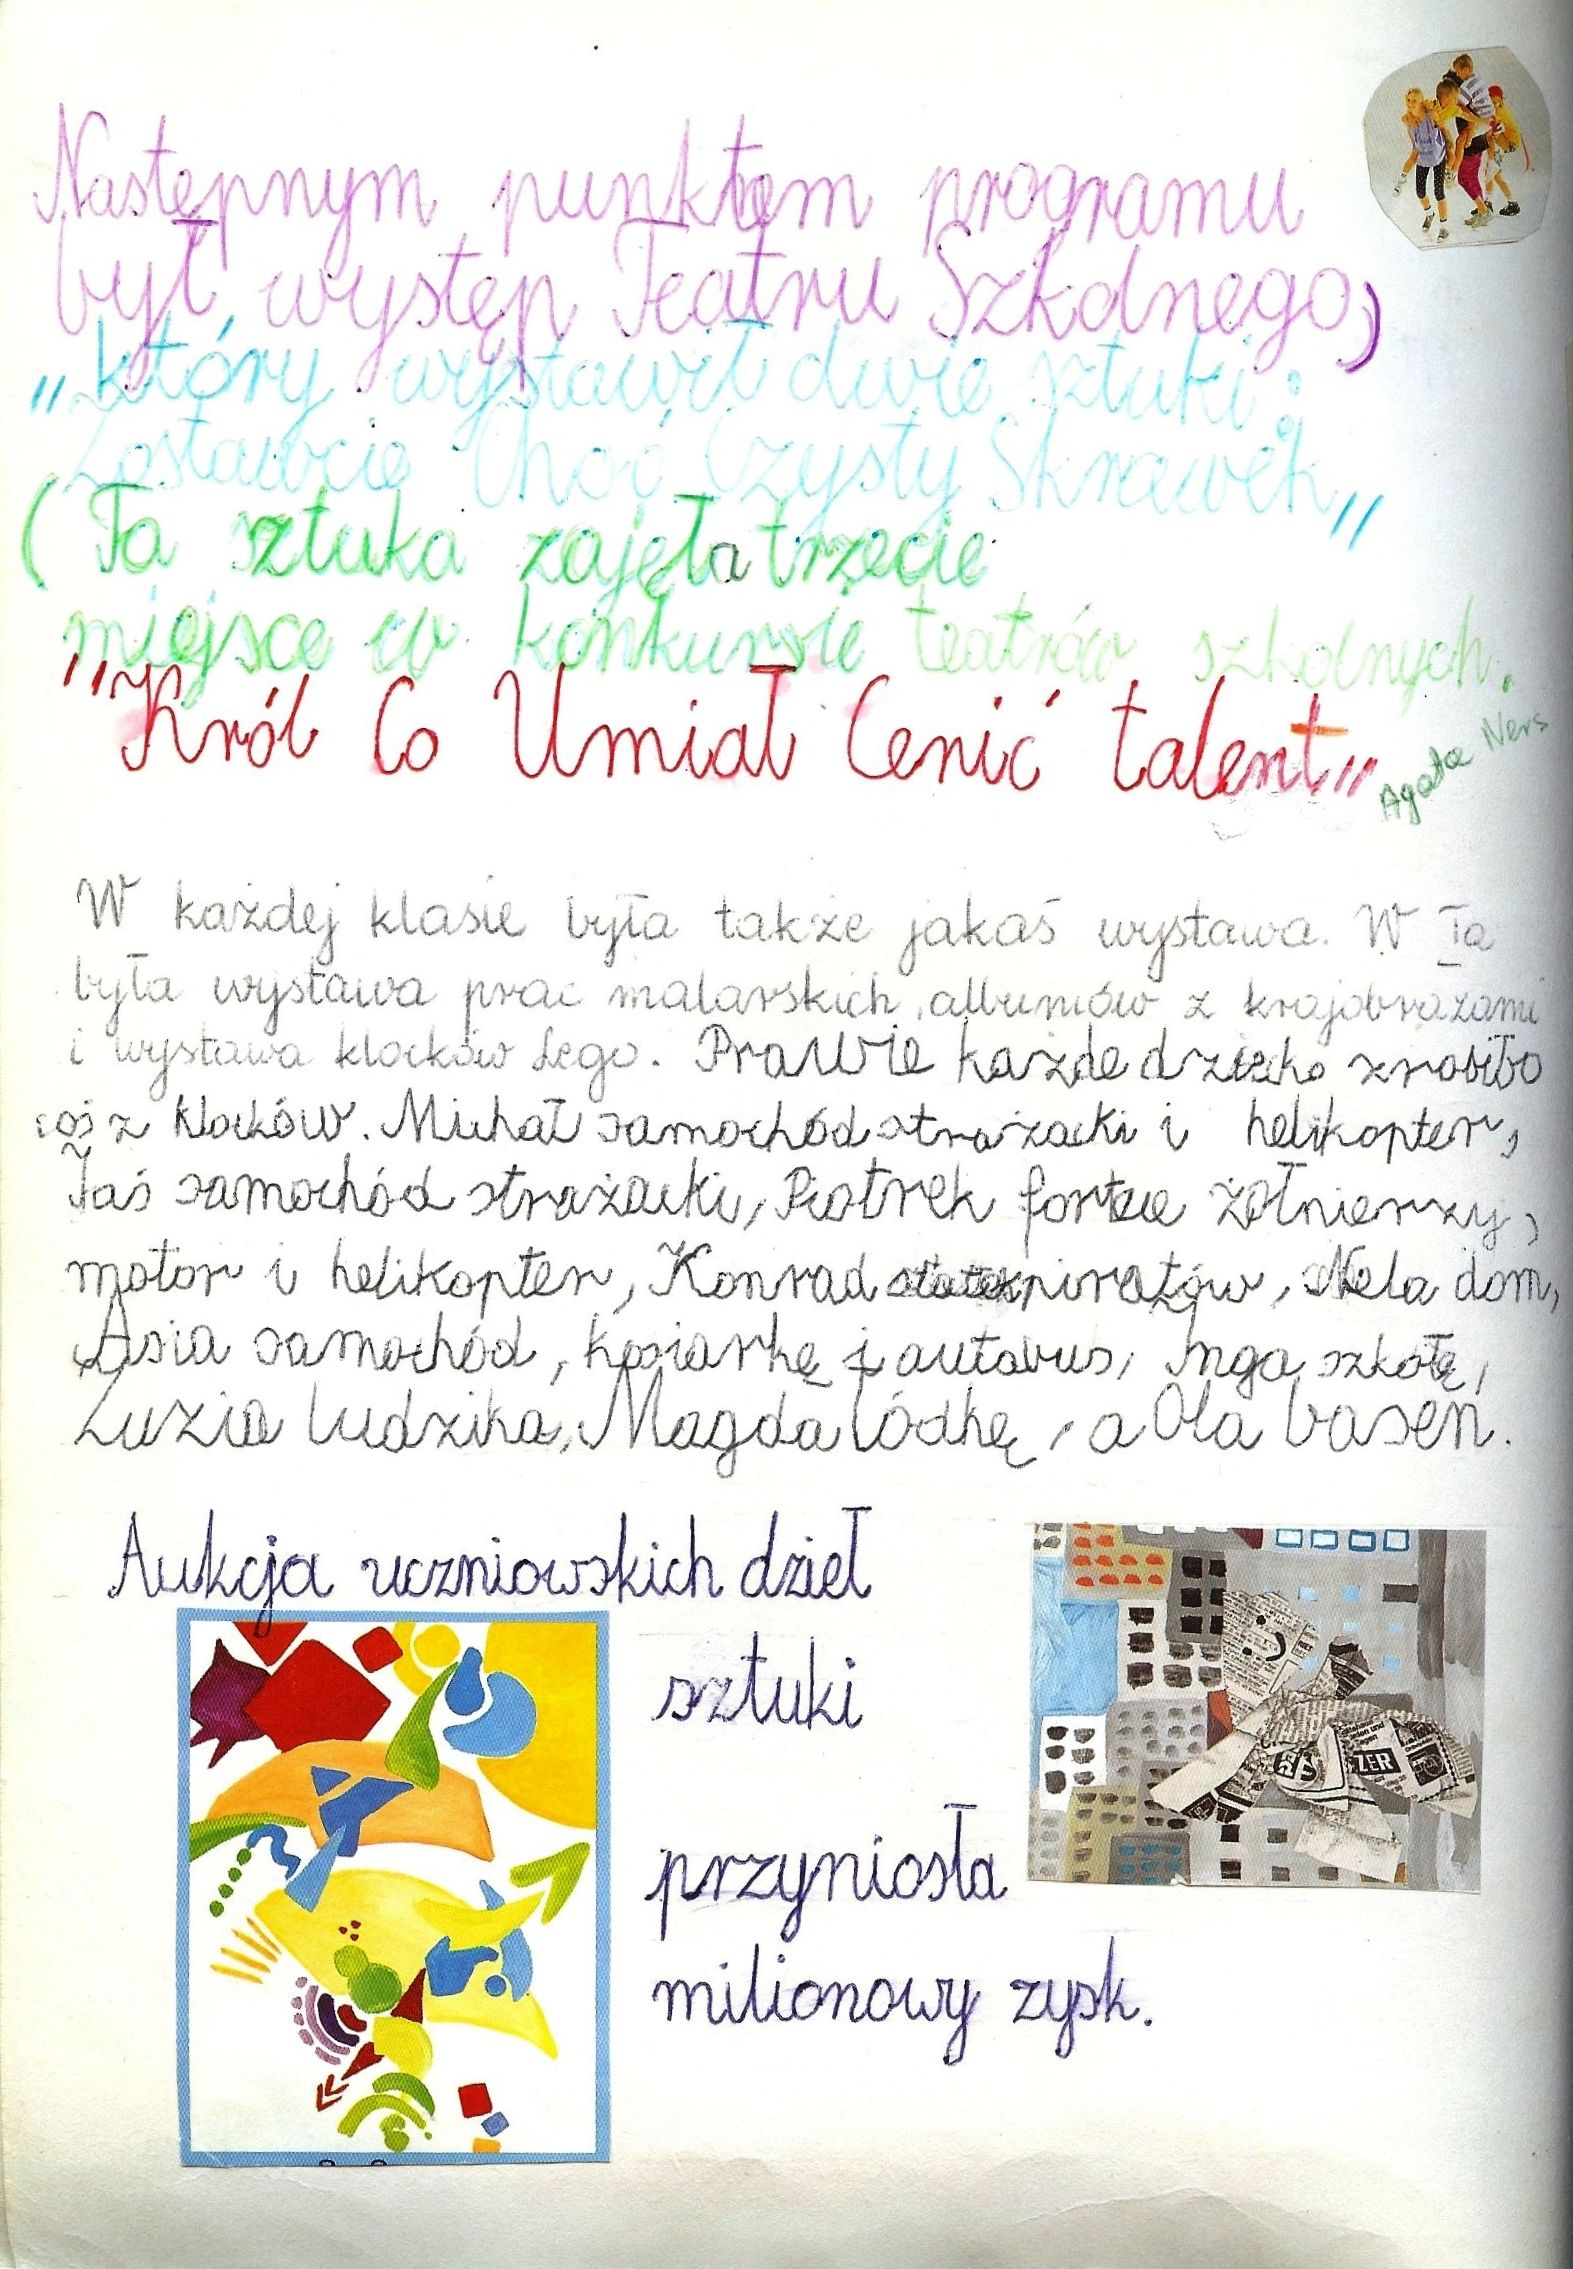 Następnym punktem programu
był występ Teatru Szkolnego,
„który wystawił dwie sztuki:
Zostawcie Choć Czysty Skrawek"
(Ta sztuka zajęła trzecie
miejsce w konkursie teatrów szkolnych.
"Król Co Umiał Cenić talent"
Agata Ners
W każdej klasie była także jakaś wystawa. W Ia
była wystawa prac malarskich, albumów z krajobrazami
i wystawa klocków Lego. Prawie każde dziecko zrobiło
coś z klocków. Michał samochód strażacki i helikopter,
Jaś samochód strażacki, Piotrek fortece żołnierzy,
motor i helikopter, Konrad statek piratów, Nela dom,
Asia samochód, kosiarkę i autobus, Inga szkołę,
Zuzia ludzika, Magda łódkę, a Ola basen.
Aukcja uczniowskich dzieł
sztuki
przyniosła
milionowy zysk.
ZER